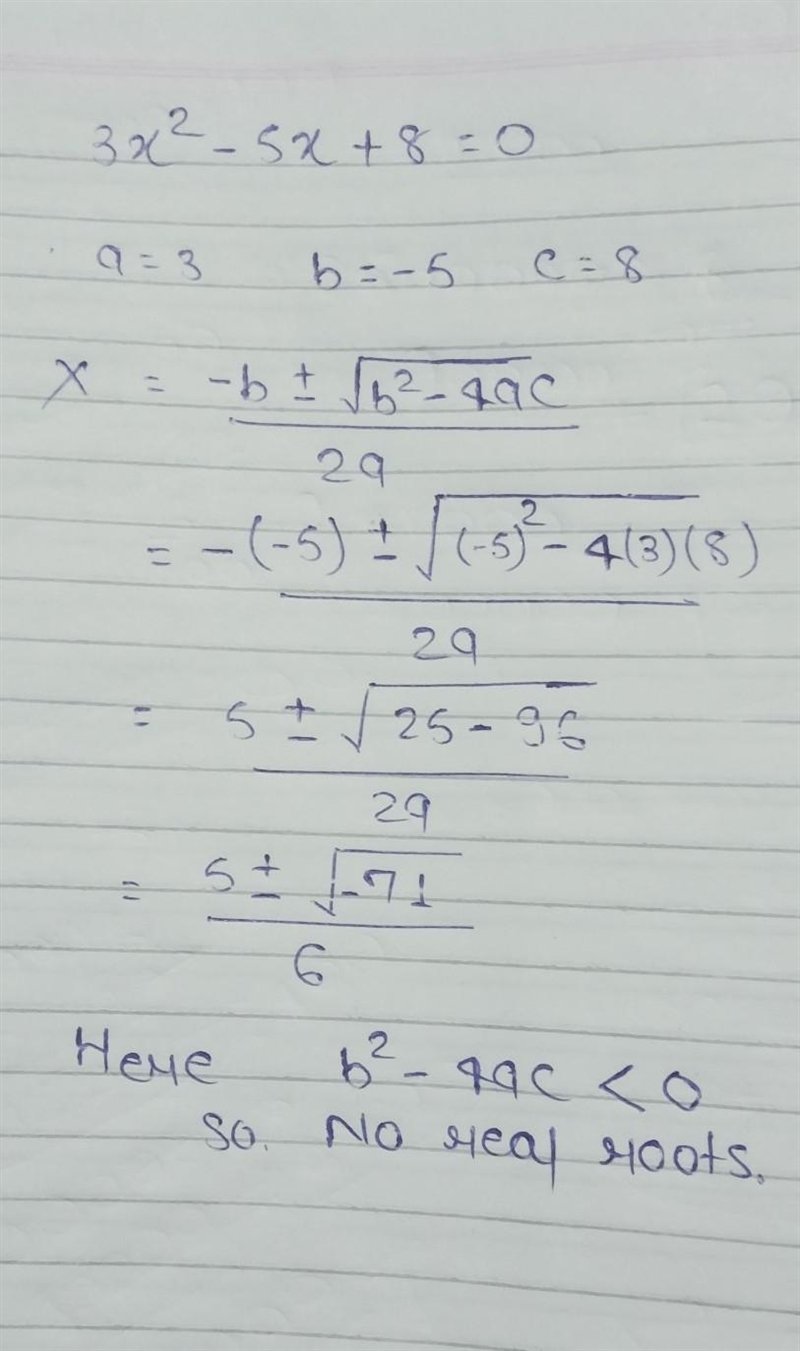 3x² - 5x + 8 = 0
a = 3 b = -5 c = 8
x = -b ± √b² - 4ac
2a
= -(-5) ± √(-5)² - 4(3)(8)
2a
= 5 ± √25 - 96
2a
= 5 ± √-71
6
Here b² - 4ac < 0
So. No real roots.